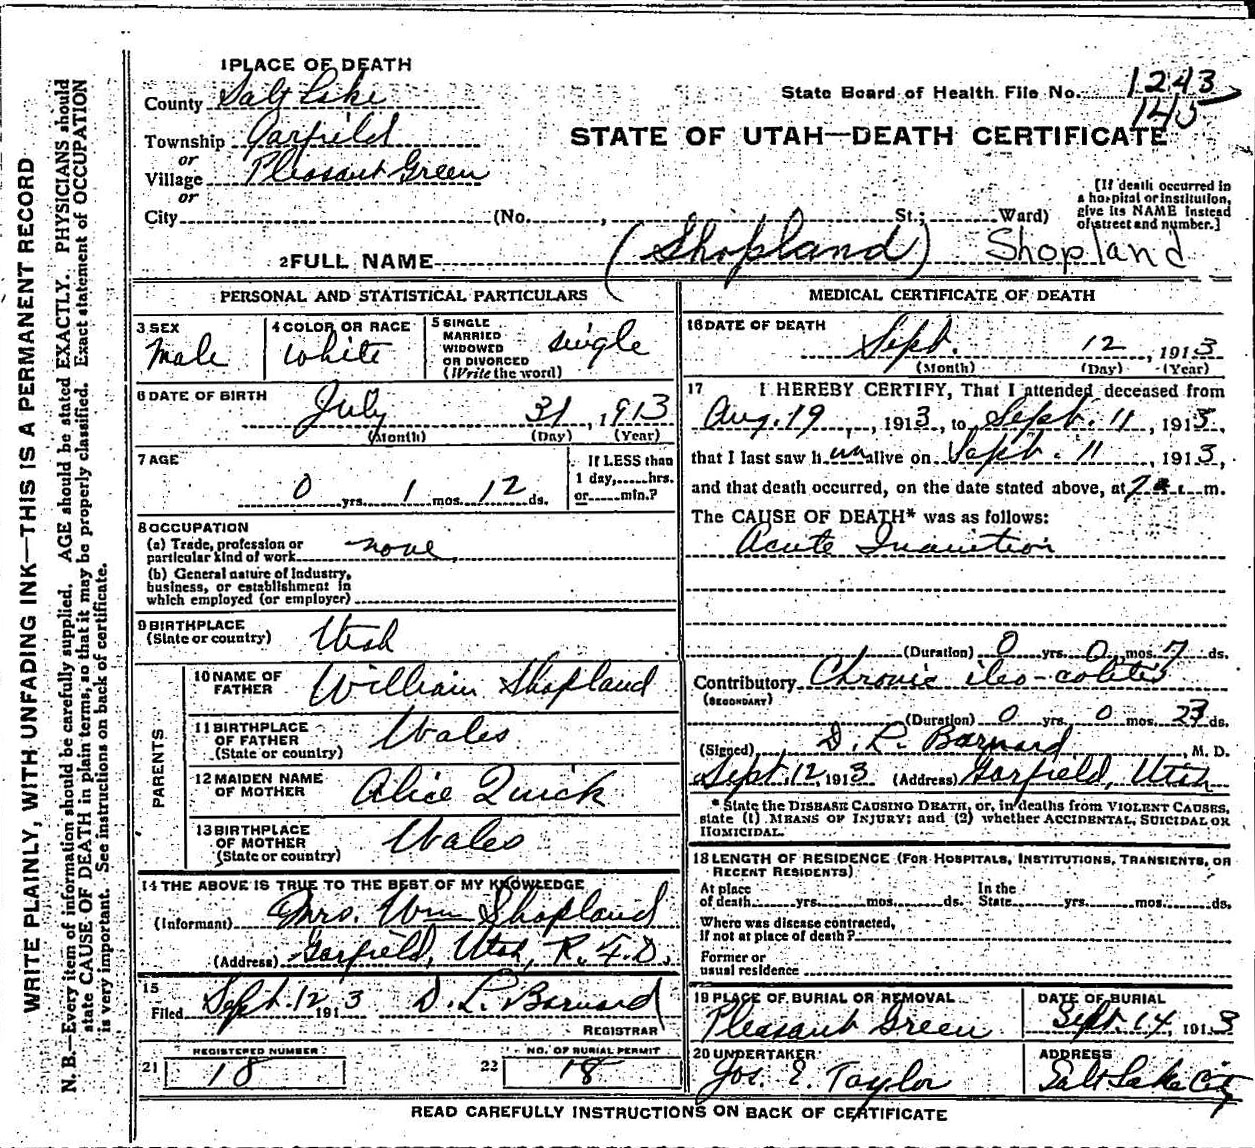 WRITE PLAINLY, WITH UNFADING INK—THIS IS A PERMANENT RECORD
N. B.—Every item of information should be carefully supplied. AGE should be stated EXACTLY. PHYSICIANS should
state CAUSE OF DEATH in plain terms, so that it may be properly classified. Exact statement of OCCUPATION
is very important. See instructions on back of certificate.
1 PLACE OF DEATH
County Salt Lake
Township Garfield
or
Village Pleasant Green
or
City (No. , St.; Ward)
State Board of Health File No. 1243
145
STATE OF UTAH—DEATH CERTIFICATE
[If death occurred in
a hospital or institution,
give its NAME instead
of street and number.]
2 FULL NAME (Shopland) Shopland
PERSONAL AND STATISTICAL PARTICULARS
3 SEX
Male
4 COLOR OR RACE
White
5 SINGLE
MARRIED
WIDOWED
OR DIVORCED
(Write the word)
single
6 DATE OF BIRTH
July 31, 1913
(Month) (Day) (Year)
7 AGE
0 yrs. 1 mos. 12 ds.
If LESS than
1 day, hrs.
or min.?
8 OCCUPATION
(a) Trade, profession or
particular kind of work none
(b) General nature of industry,
business, or establishment in
which employed (or employer)
9 BIRTHPLACE
(State or country) Utah
PARENTS
10 NAME OF
FATHER William Shopland
11 BIRTHPLACE
OF FATHER
(State or country) Wales
12 MAIDEN NAME
OF MOTHER Alice Quick
13 BIRTHPLACE
OF MOTHER
(State or country) Wales
14 THE ABOVE IS TRUE TO THE BEST OF MY KNOWLEDGE
(Informant) Mrs. Wm Shopland
(Address) Garfield, Utah, R. F. D.
15
Filed Sept. 12 1913 D. L. Barnard
REGISTRAR
21 REGISTERED NUMBER
18
22 NO. OF BURIAL PERMIT
18
MEDICAL CERTIFICATE OF DEATH
16 DATE OF DEATH
Sept. 12, 1913
(Month) (Day) (Year)
17 I HEREBY CERTIFY, That I attended deceased from
Aug. 19, 1913, to Sept. 11, 1913,
that I last saw him alive on Sept. 11, 1913,
and that death occurred, on the date stated above, at 7 a. m.
The CAUSE OF DEATH* was as follows:
Acute Inanition
(Duration) 0 yrs. 0 mos. 7 ds.
Contributory Chronic ileo-colitis
(SECONDARY)
(Duration) 0 yrs. 0 mos. 23 ds.
(Signed) D. L. Barnard, M. D.
Sept. 12, 1913 (Address) Garfield, Utah
*State the DISEASE CAUSING DEATH, or, in deaths from VIOLENT CAUSES,
state (1) MEANS OF INJURY; and (2) whether ACCIDENTAL, SUICIDAL OR
HOMICIDAL.
18 LENGTH OF RESIDENCE (FOR HOSPITALS, INSTITUTIONS, TRANSIENTS, OR
RECENT RESIDENTS)
At place
of death yrs. mos. ds.
In the
State yrs. mos. ds.
Where was disease contracted,
if not at place of death?
Former or
usual residence
19 PLACE OF BURIAL OR REMOVAL
Pleasant Green
DATE OF BURIAL
Sept. 14, 1913
20 UNDERTAKER
Jos. E. Taylor
ADDRESS
Salt Lake City
READ CAREFULLY INSTRUCTIONS ON BACK OF CERTIFICATE